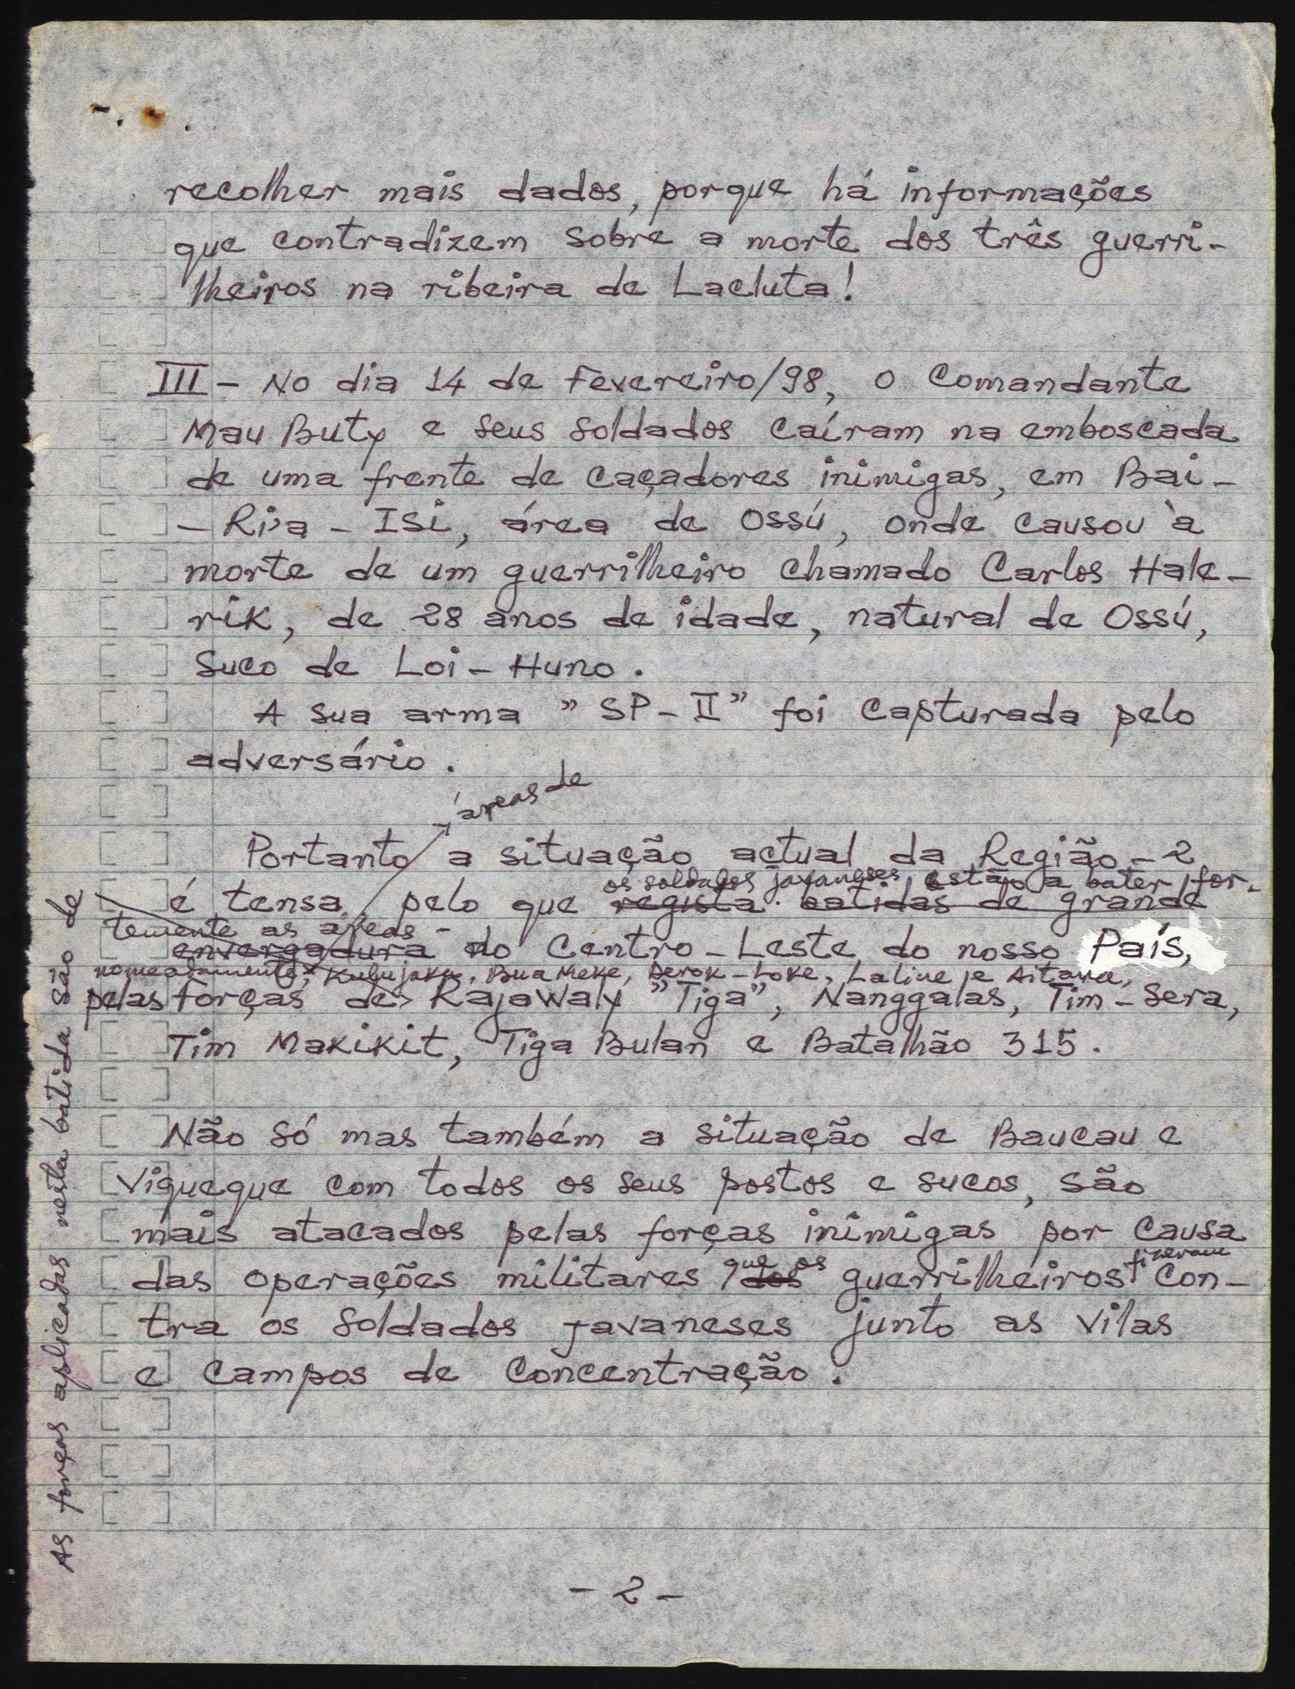 recolher mais dados, porque há informações
que contradizem sobre a morte dos três guerri-
lheiros na ribeira de Lacluta!
III - No dia 14 de Fevereiro/98, o Comandante
Mau Buty e seus soldados caíram na emboscada
de uma frente de caçadores inimigas, em Bai-
- Riba - ISi, área de Ossú, onde causou à
morte de um guerrilheiro chamado Carlos Hale-
rik, de 28 anos de idade, natural de Ossú,
Suco de Loi - Huno.
A sua arma " SP - II " foi capturada pelo
adversário.
áreas de
Portanto a situação actual da Região - 2
os soldados javaneses estão a bater for-
é tensa, pelo que regista batidas de grande
temente as áreas -
envergadura do Centro - Leste do nosso País,
nomeadamente, Builo, Bua Meke, Derok - Loke, Laline e Aitana,
pelas forças de Rajawaly "Tiga", Nanggalas, Tim - Sera,
Tim Makikit, Tiga Bulan e Batalhão 315.
Não só mas também a situação de Baucau e
Viqueque com todos os seus postos e sucos, são
mais atacados pelas forças inimigas por causa
das operações militares dos que os guerrilheiros fizeram con-
tra os soldados javaneses junto as vilas
e campos de concentração.
As forças aplicadas nesta batida são de
- 2 -